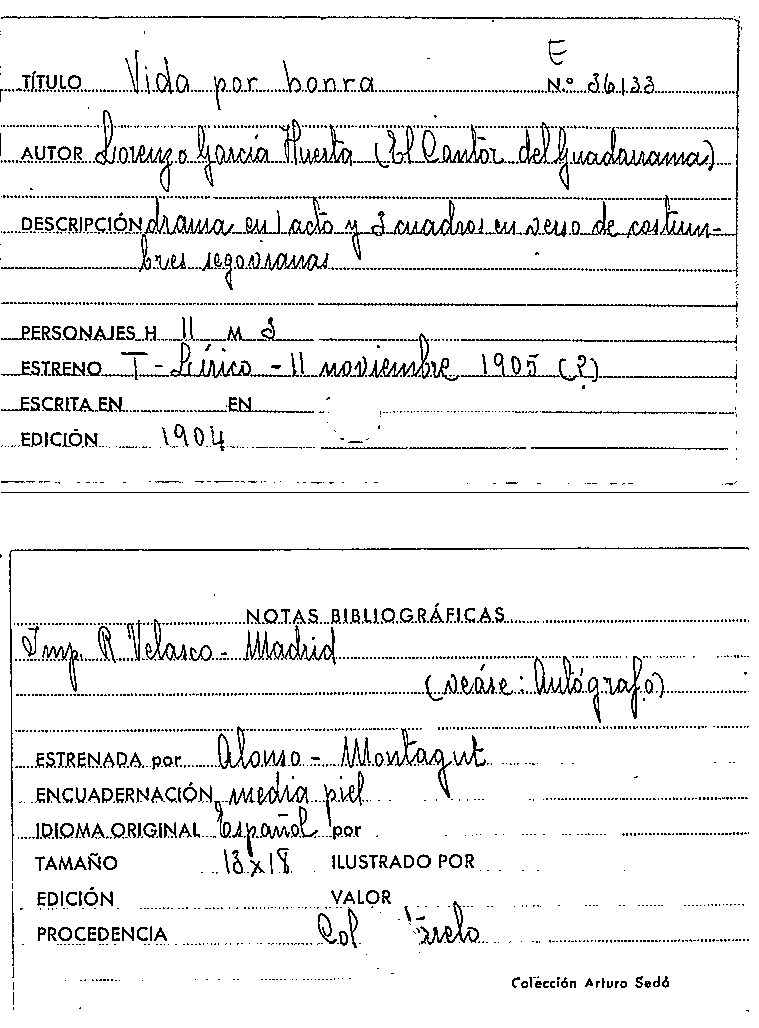 E
TÍTULO Vida por honra N.º 36133
AUTOR Lorenzo García Huerta (El Cantor del Guadarrama)
DESCRIPCIÓN drama en 1 acto y 3 cuadros en verso de costum-
bres segovianas
PERSONAJES H 11 M 3
ESTRENO T - Lírico - 11 noviembre 1905 (?)
ESCRITA EN EN
EDICIÓN 1904
NOTAS BIBLIOGRÁFICAS
Imp. R Velasco - Madrid
(veáse: Autógrafo)
ESTRENADA por Alonso - Montagut
ENCUADERNACIÓN media piel
IDIOMA ORIGINAL Español por
TAMAÑO 13x18 ILUSTRADO POR
EDICIÓN VALOR
PROCEDENCIA Col
Colección Arturo Sedó